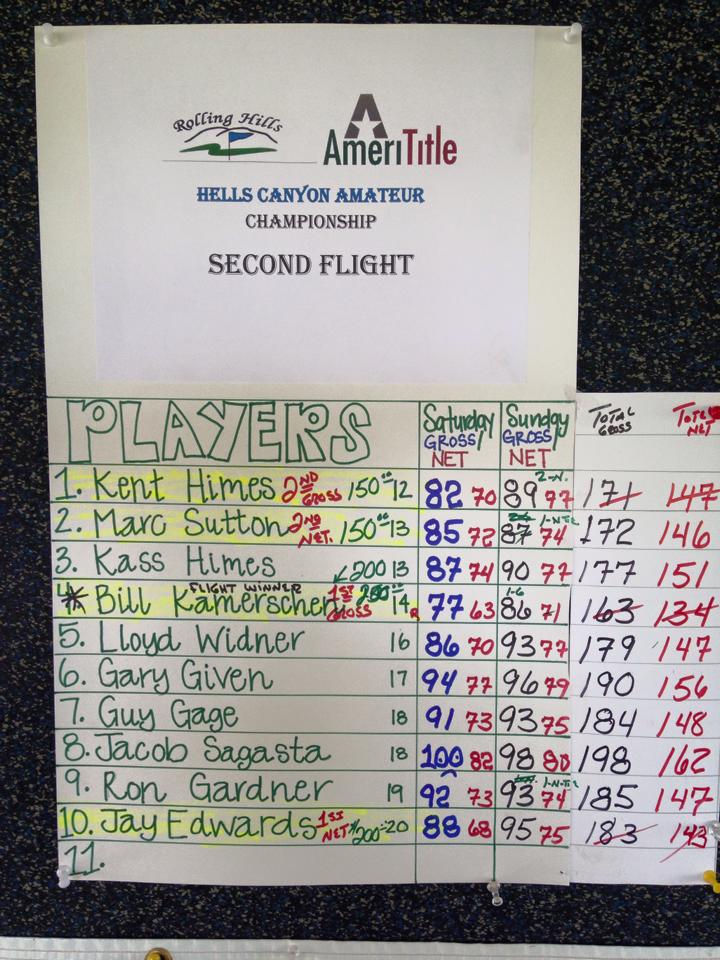 Rolling Hills
AmeriTitle
HELLS CANYON AMATEUR
CHAMPIONSHIP
SECOND FLIGHT
PLAYERS Saturday GROSS NET Sunday GROSS NET TOTAL GROSS TOTAL NET
1. Kent Himes 2ND GROSS 150.00 12 82 70 89 77 171 147
2. Marc Sutton 2ND NET. 150.00 13 85 72 87 74 172 146
3. Kass Himes 200 13 87 74 90 77 177 151
4. Bill Kamerschen FLIGHT WINNER 1ST GROSS 14 77 63 86 71 163 134
5. Lloyd Widner 16 86 70 93 77 179 147
6. Gary Given 17 94 77 96 79 190 156
7. Guy Gage 18 91 73 93 75 184 148
8. Jacob Sagasta 18 100 82 98 80 198 162
9. Ron Gardner 19 92 73 93 74 185 147
10. Jay Edwards 1ST NET $200 20 88 68 95 75 183 143
11.